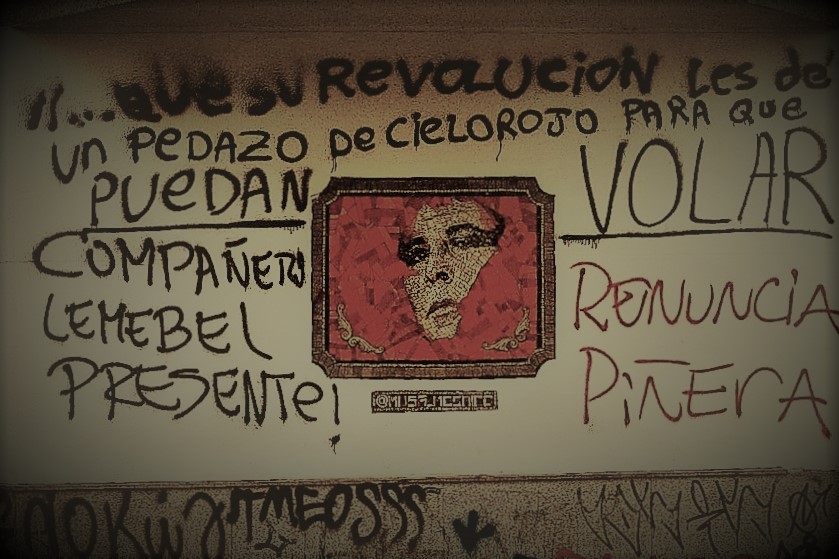 "...QUE SU REVOLUCION LES dé
UN PEDAZO DE CIELO ROJO PARA QUE
PUEDAN VOLAR
COMPAÑERO
LEMEBEL
PRESENTE!
RENUNCIA
PIÑERA